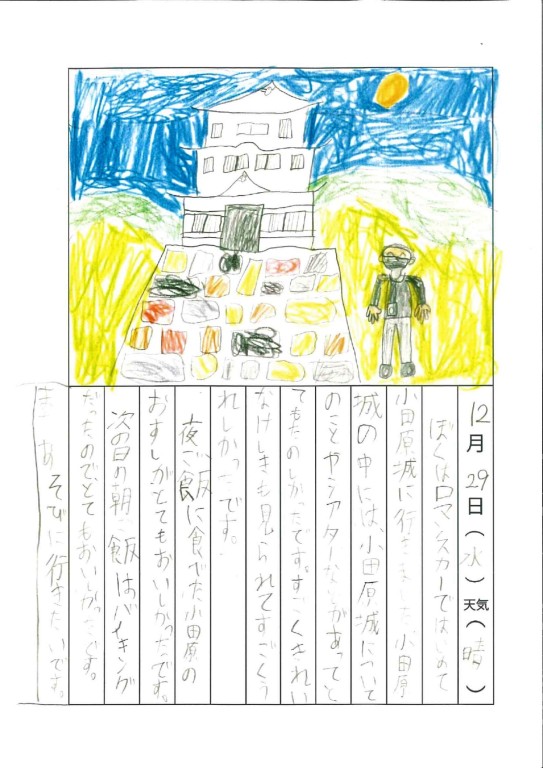 12月29日(水)天気(晴)
ぼくはロマンスカーではじめて
小田原城に行きました。小田原
城の中には、小田原城について
のことやシアターなどがあってと
てもたのしかったです。すごくきれい
なけしきも見られてすごくう
れしかったです。
夜ご飯に食べた小田原の
おすしがとてもおいしかったです。
次の日の朝ご飯はバイキング
だったのでとてもおいしかったです。
また あそびに行きたいです。